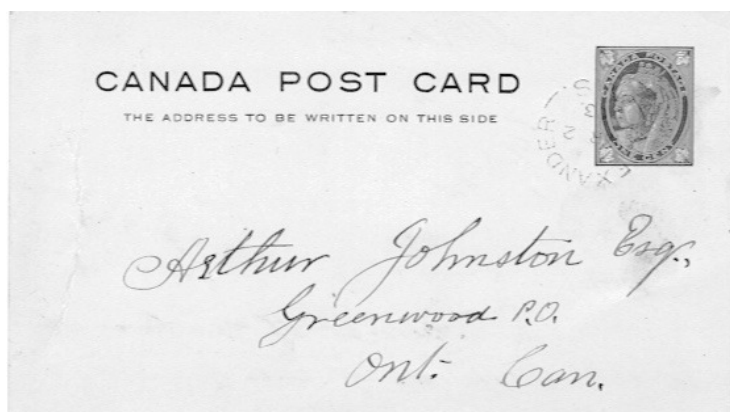 CANADA POST CARD
THE ADDRESS TO BE WRITTEN ON THIS SIDE
CANADA POSTAGE
ONE CENT
Arthur Johnston Esq.,
Greenwood P.O.
Ont. Can.